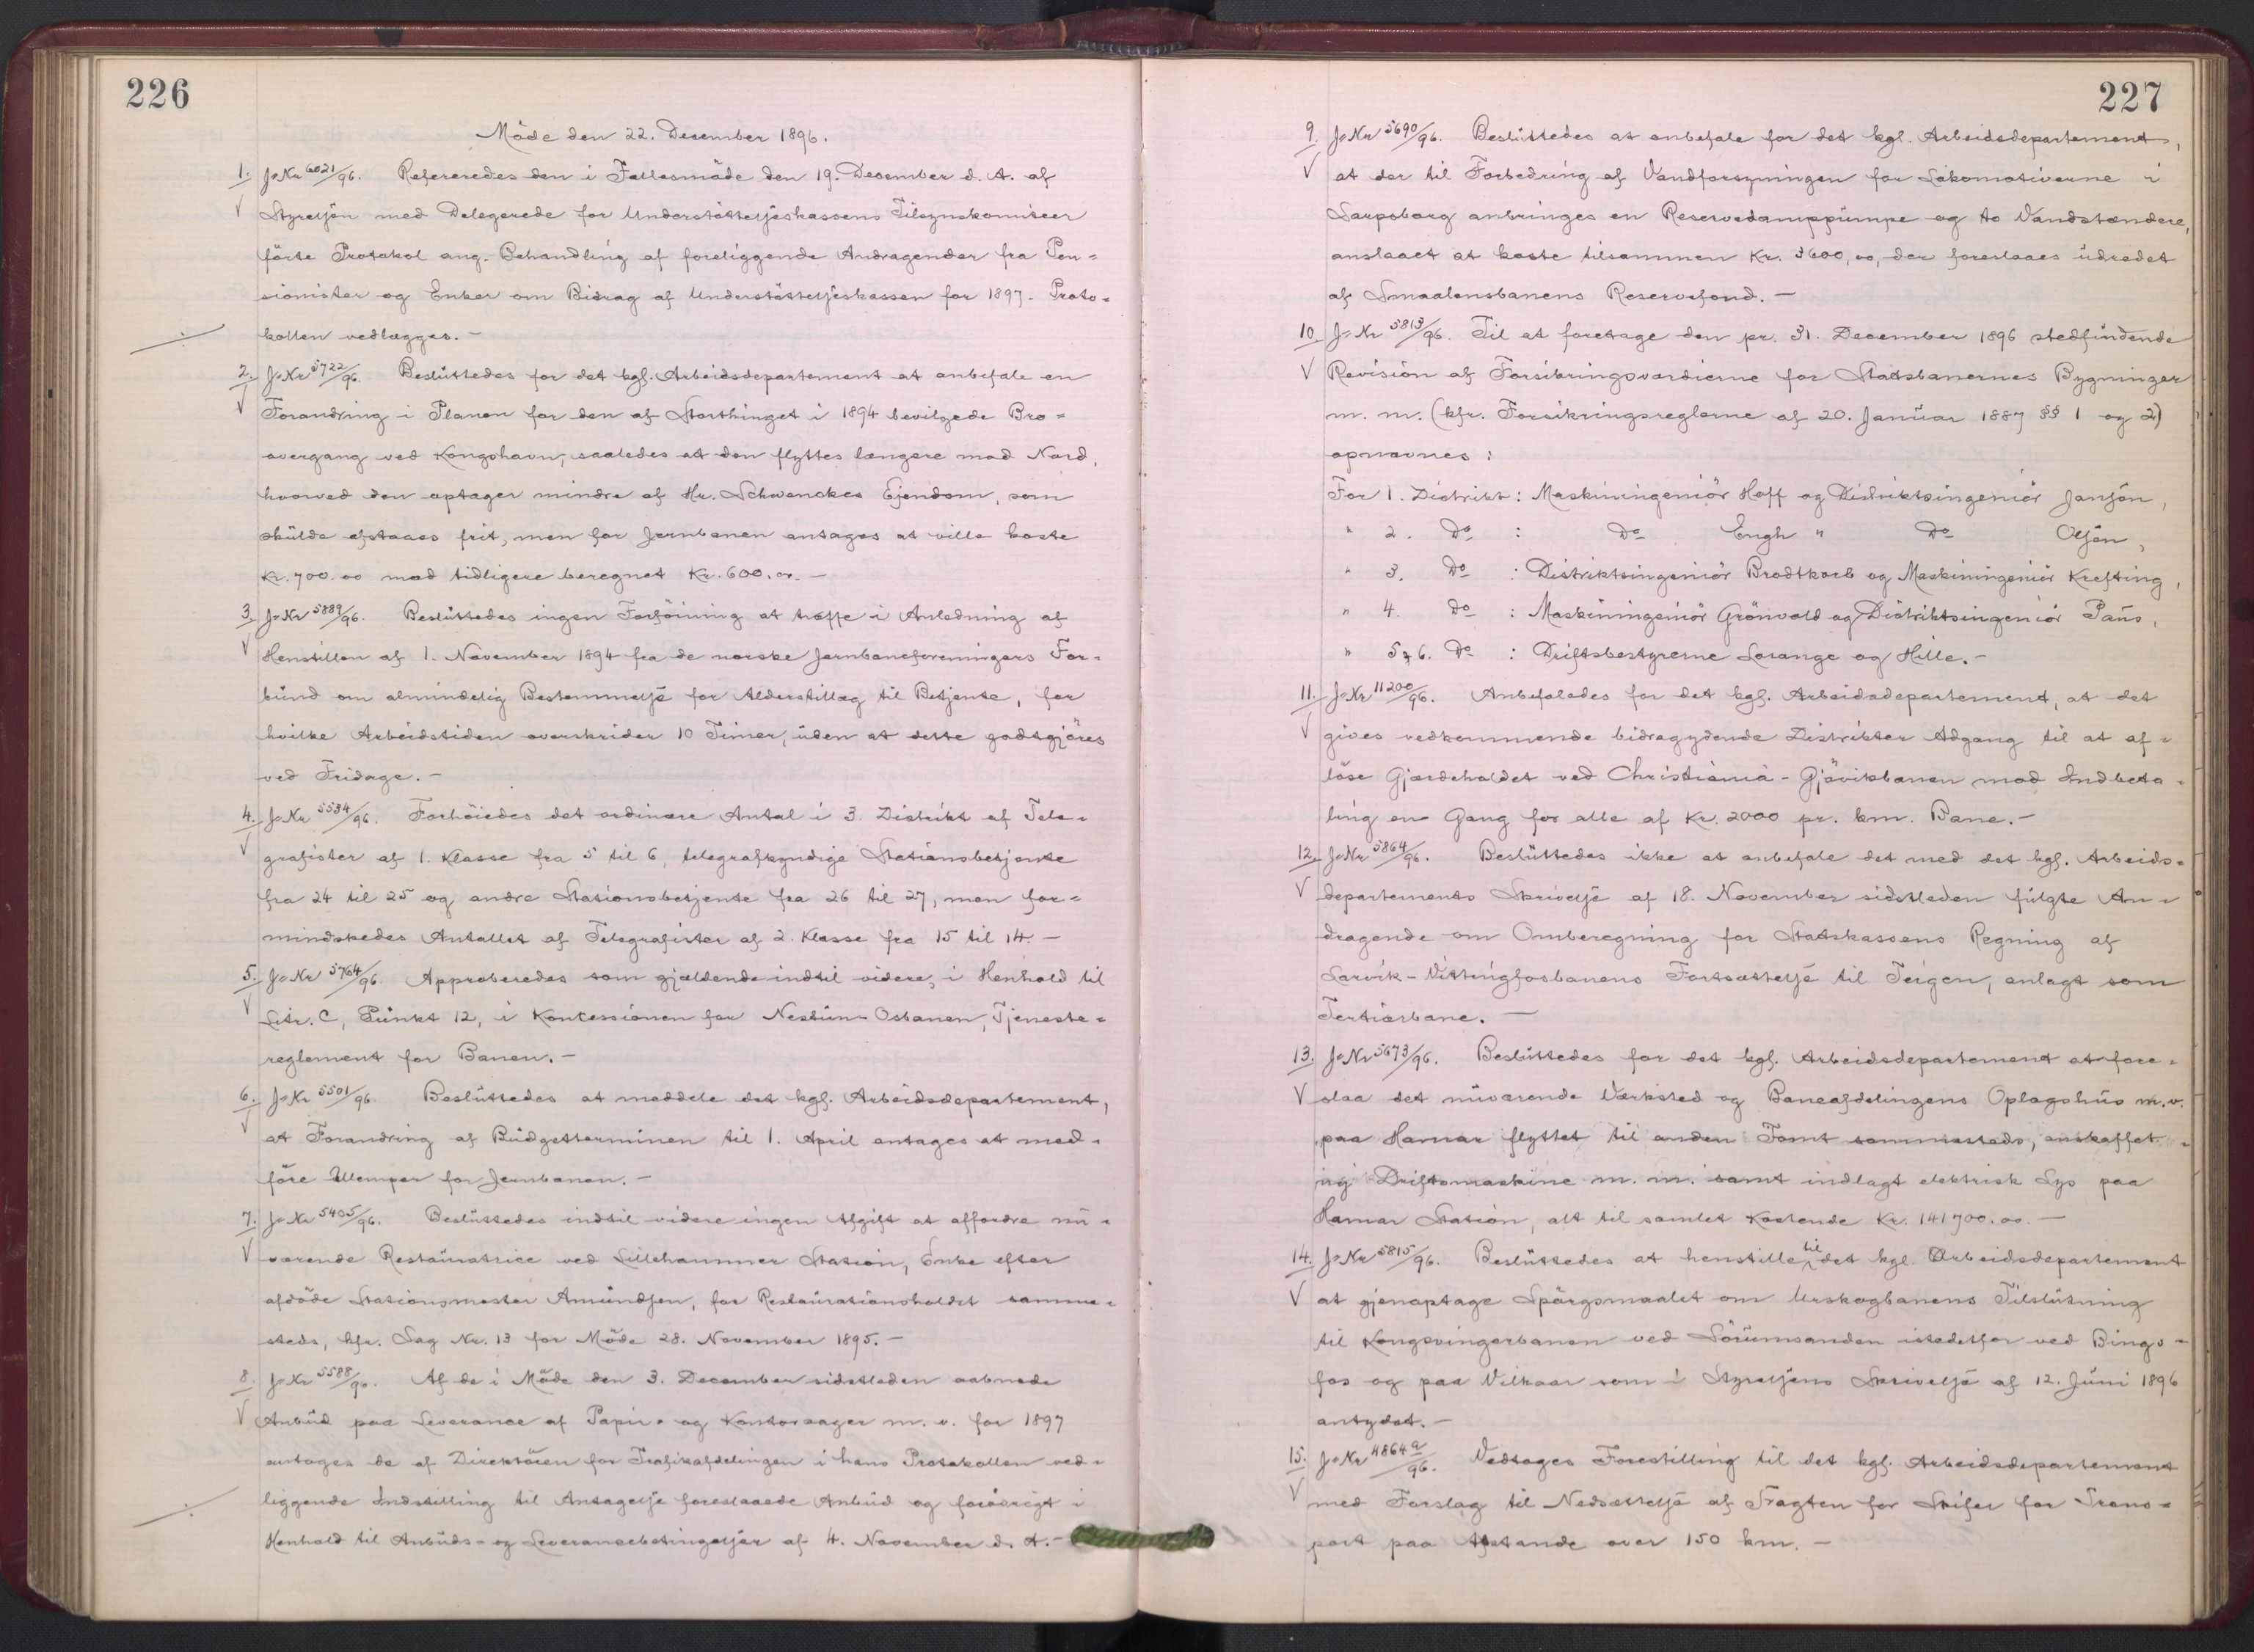 226
Møde den 22. December 1896.
1. J-Nr 6021/96. Refereredes den i Fællesmøde den 19. December d. A. af
V Styrelsen med Delegerede for Understøttelseskassens Tilsynskomiteer
førte Protokol ang. Behandling af foreliggende Andragender fra Pen=
sionister og Enker om Bidrag af Understøttelseskassen for 1897. Proto=
kollen vedlægges. –
2. J-Nr 5722/96. Besluttedes for det kgl. Arbeidsdepartement at anbefale en
V Forandring i Planen for den af Storthinget i 1894 bevilgede Bro=
overgang ved Kongshavn, saaledes at den flyttes længere mod Nord,
hvorved den optager mindre af Hr. Schwenckes Ejendom, som
skulde afstaaes frit, men for Jernbanen antages at ville koste
Kr. 700.00 mod tidligere beregnet Kr. 600.00. –
3. J-Nr 5889/96. Besluttedes ingen Forføining at træffe i Anledning af
V Henstillen af 1. November 1894 fra de norske Jernbaneforeningers For=
bund om almindelig Bestemmelse for Alderstillæg til Betjente, for
hvilke Arbeidstiden overskrider 10 Timer, uden at dette godtgjøres
ved Fridage. –
4. J-Nr 5534/96. Forhøiedes det ordinære Antal i 3. Distrikt af Tele=
V grafister af 1. Klasse fra 5 til 6, telegrafkyndige Stationsbetjente
fra 24 til 25 og andre Stationsbetjente fra 26 til 27, men for=
mindskedes Antallet af Telegrafister af 2. Klasse fra 15 til 14. –
5. J-Nr 5764/96. Approberedes som gjældende indtil videre, i Henhold til
V Litr. C, Punkt 12, i Koncessionen for Nestun-Osbanen, Tjeneste=
reglement for Banen. –
6. J-Nr 5501/96. Besluttedes at meddele det kgl. Arbeidsdepartement,
V at Forandring af Budgetterminen til 1. April antages at med=
føre Ulemper for Jernbanen. –
7. J-Nr 5405/96. Besluttedes indtil videre ingen Afgift at affordre nu=
V værende Restauratrice ved Lillehammer Station, Enke efter
afdøde Stationsmester Amundsen, for Restaurationsholdet samme=
steds, kfr. Sag Nr. 13 for Møde 28. November 1895. –
8. J-Nr 5588/96. Af de i Møde den 3. December sidstleden aabnede
V Anbud paa Leverance af Papir- og Kontorsager m. v. for 1897
antages de af Direktøren for Trafikafdelingen i hans Protokollen ved=
liggende Indstilling til Antagelse foreslaaede Anbud og forøvrigt i
Henhold til Anbuds- og Leverancebetingelser af 4. November d. A. –
227
9. J-Nr 5690/96. Besluttedes at anbefale for det kgl. Arbeidsdepartement,
V at der til Forbedring af Vandforsyningen for Lokomotiverne i
Sarpsborg anbringes en Reservedamppumpe og to Vandstændere,
anslaaet at koste tilsammen Kr. 3600,00, der foreslaaes udredet
af Smaalensbanens Reservefond. –
10. J-Nr 5813/96. Til at foretage den pr. 31. December 1896 stedfindende
V Revision af Forsikringsværdierne for Statsbanernes Bygninger
m. m. (kfr. Forsikringsreglerne af 20. Januar 1887 §§ 1 og 2)
opnævnes:
For 1. Distrikt: Maskiningeniør Hoff og Distriktsingeniør Jansøn,
" 2. Do : Do Engh " Do Olsen,
" 3. Do : Distriktsingeniør Brodtkorb og Maskiningeniør Krefting,
" 4. Do : Maskiningeniør Grønvold og Distriktsingeniør Paus,
" 5 & 6. Do : Driftsbestyrerne Lorange og Hille. –
11. J-Nr 11200/96. Anbefaledes for det kgl. Arbeidsdepartement, at det
V gives vedkommende bidragydende Distrikter Adgang til at af=
løse Gjærdeholdet ved Christiania-Gjøvikbanen mod Indbeta=
ling en Gang for alle af Kr. 2000 pr. km. Bane. –
12. J-Nr 5864/96. Besluttedes ikke at anbefale det med det kgl. Arbeids=
V departements Skrivelse af 18. November sidstleden fulgte An=
dragende om Omberegning for Statskassens Regning af
Larvik-Vittingfosbanens Fortsættelse til Teigen, anlagt som
Tertiærbane. –
13. J-Nr 5673/96. Besluttedes for det kgl. Arbeidsdepartement at fore=
V slaa det nuværende Værksted og Baneafdelingens Oplagshus m. v.
paa Hamar flyttet til anden Tomt sammesteds, anskaffet
ny Driftsmaskine m. m. samt indlagt elektrisk Lys paa
Hamar Station, alt til samlet Kostende Kr. 141700.00. –
14. J-Nr 5815/96. Besluttedes at henstille til det kgl. Arbeidsdepartement
V at gjenoptage Spørgsmaalet om Urskogbanens Tilslutning
til Kongsvingerbanen ved Sørumsanden istedetfor ved Bings=
fos og paa Vilkaar som i Styrelsens Skrivelse af 12. Juni 1896
antydet. –
15. J-Nr 4864 a/96. Vedtages Forestilling til det kgl. Arbeidsdepartement
V med Forslag til Nedsættelse af Fragten for Skifer for Trans=
port paa Afstande over 150 km. –